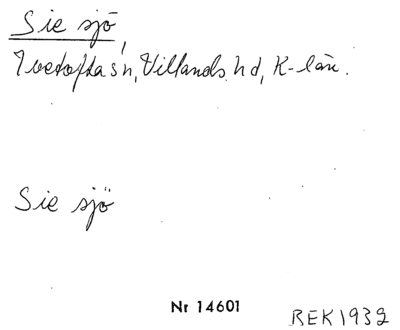 Sie sjö,
Ivetofta sn, Villands hd, K-län.
Sie sjö
Nr 14601
REK 1932